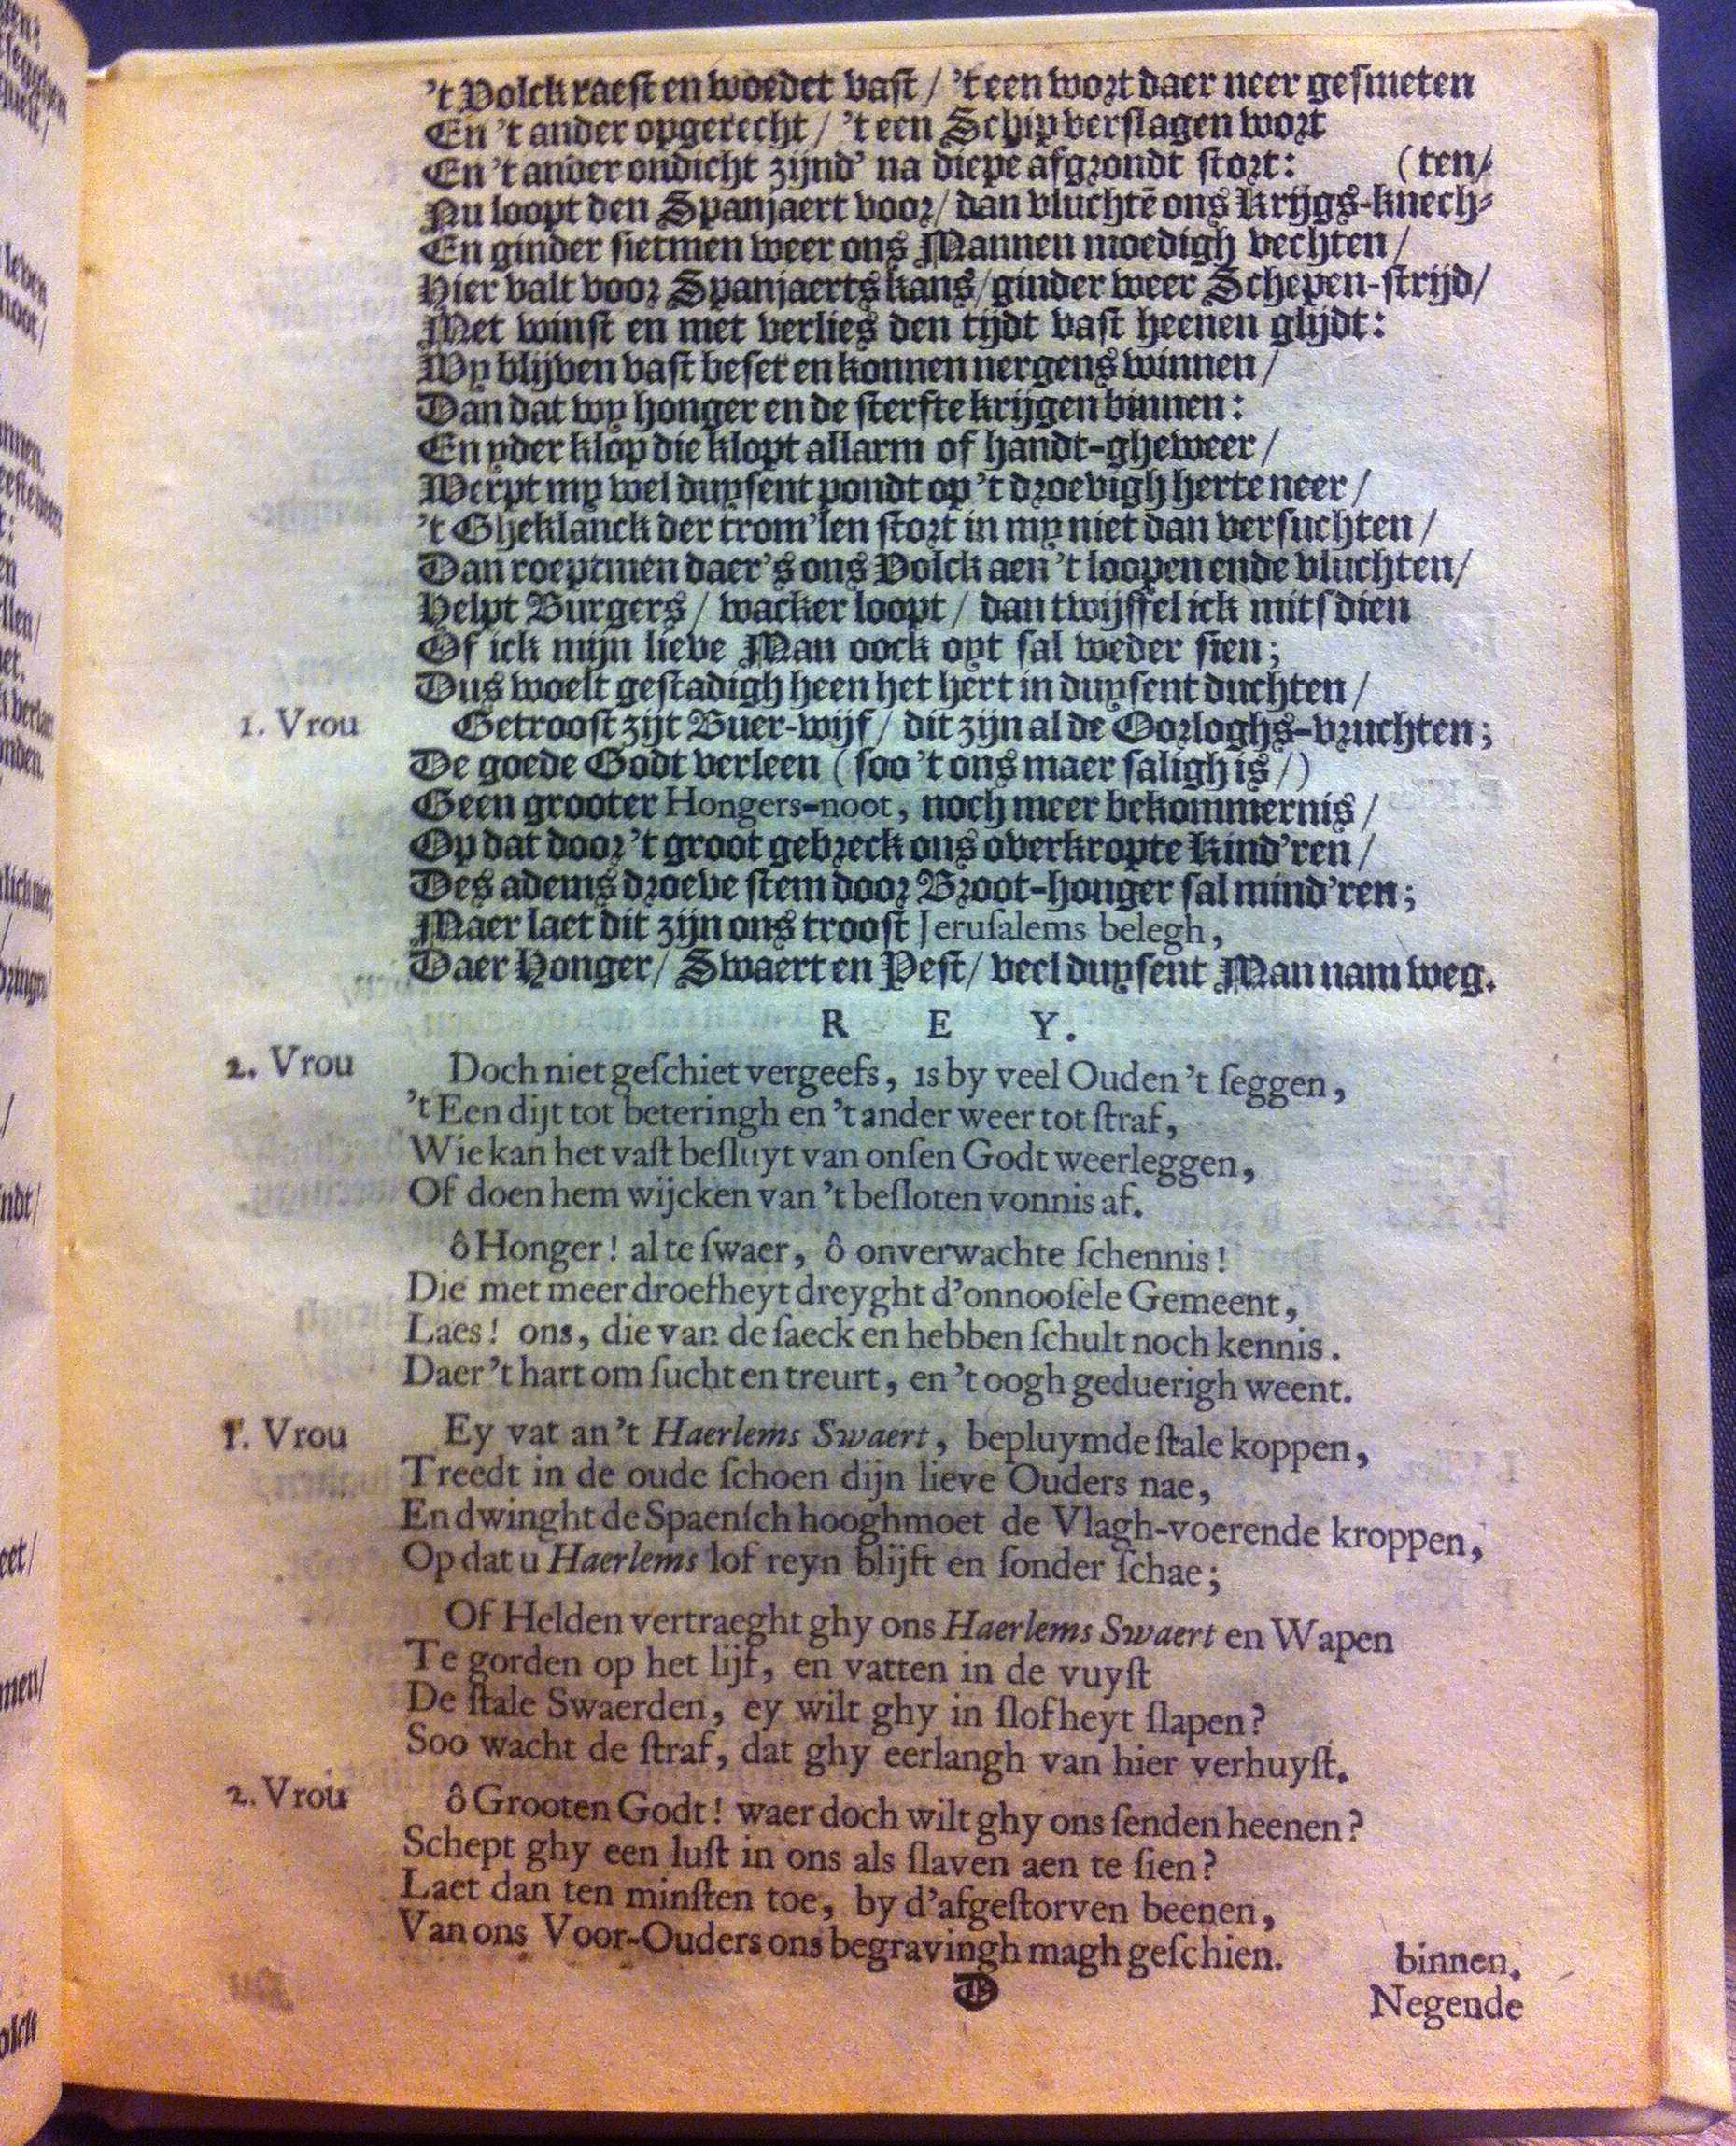 't Volck raest en woedet vast / 't een wort daer neer gesmeten
En 't ander opgerecht / 't een Schip verslagen wort
En 't ander ondicht zijnd' na diepe afgrondt stort: (ten/
Nu loopt den Spanjaert voor / dan vluchtē ons Krijgs-knech-
En ginder sietmen weer ons Mannen moedigh vechten /
Hier valt voor Spanjaerts kans / ginder weer Schepen-strijd /
Met winst en met verlies den tijdt vast heenen glijdt:
Wy blijven vast beset en konnen nergens winnen /
Dan dat wy honger en de sterfte krijgen binnen:
En yder klop die klopt allarm of handt-gheweer /
Werpt my wel duysent pondt op 't droevigh herte neer /
't Gheklanck der trom'len stort in my niet dan versuchten /
Dan roeptmen daer's ons Volck aen 't loopen ende vluchten /
Helpt Burgers / wacker loopt / dan twijffel ick mits dien
Of ick mijn lieve Man oock oyt sal weder sien;
Dus woelt gestadigh heen het hert in duysent duchten /
1. Vrou Getroost zijt Buer-wijf / dit zijn al de Oorloghs-vruchten;
De goede Godt verleen (soo 't ons maer saligh is /)
Geen grooter Hongers-noot, noch meer bekommernis /
Op dat door 't groot gebreck ons overkropte Kind'ren /
Des adems droeve stem door Broot-honger sal mind'ren;
Maer laet dit zijn ons troost Jerusalems belegh,
Daer Honger / Swaert en Pest / veel duysent Man nam weg.
R E Y.
2. Vrou Doch niet geschiet vergeefs, is by veel Ouden 't seggen,
't Een dijt tot beteringh en 't ander weer tot straf,
Wie kan het vast besluyt van onsen Godt weerleggen,
Of doen hem wijcken van 't besloten vonnis af.
ô Honger! al te swaer, ô onverwachte schennis!
Die met meer droefheyt dreyght d'onnoosele Gemeent,
Laes! ons, die van de saeck en hebben schult noch kennis.
Daer 't hart om sucht en treurt, en 't oogh geduerigh weent.
1. Vrou Ey vat an 't Haerlems Swaert, bepluymde stale koppen,
Treedt in de oude schoen dijn lieve Ouders nae,
En dwinght de Spaensch hooghmoet de Vlagh-voerende kroppen,
Op dat u Haerlems lof reyn blijft en sonder schae;
Of Helden vertraeght ghy ons Haerlems Swaert en Wapen
Te gorden op het lijf, en vatten in de vuyst
De stale Swaerden, ey wilt ghy in slofheyt slapen?
Soo wacht de straf, dat ghy eerlangh van hier verhuyst.
2. Vrou ô Grooten Godt! waer doch wilt ghy ons senden heenen?
Schept ghy een lust in ons als slaven aen te sien?
Laet dan ten minsten toe, by d'afgestorven beenen,
Van ons Voor-Ouders ons begravingh magh geschien. binnen.
D Negende